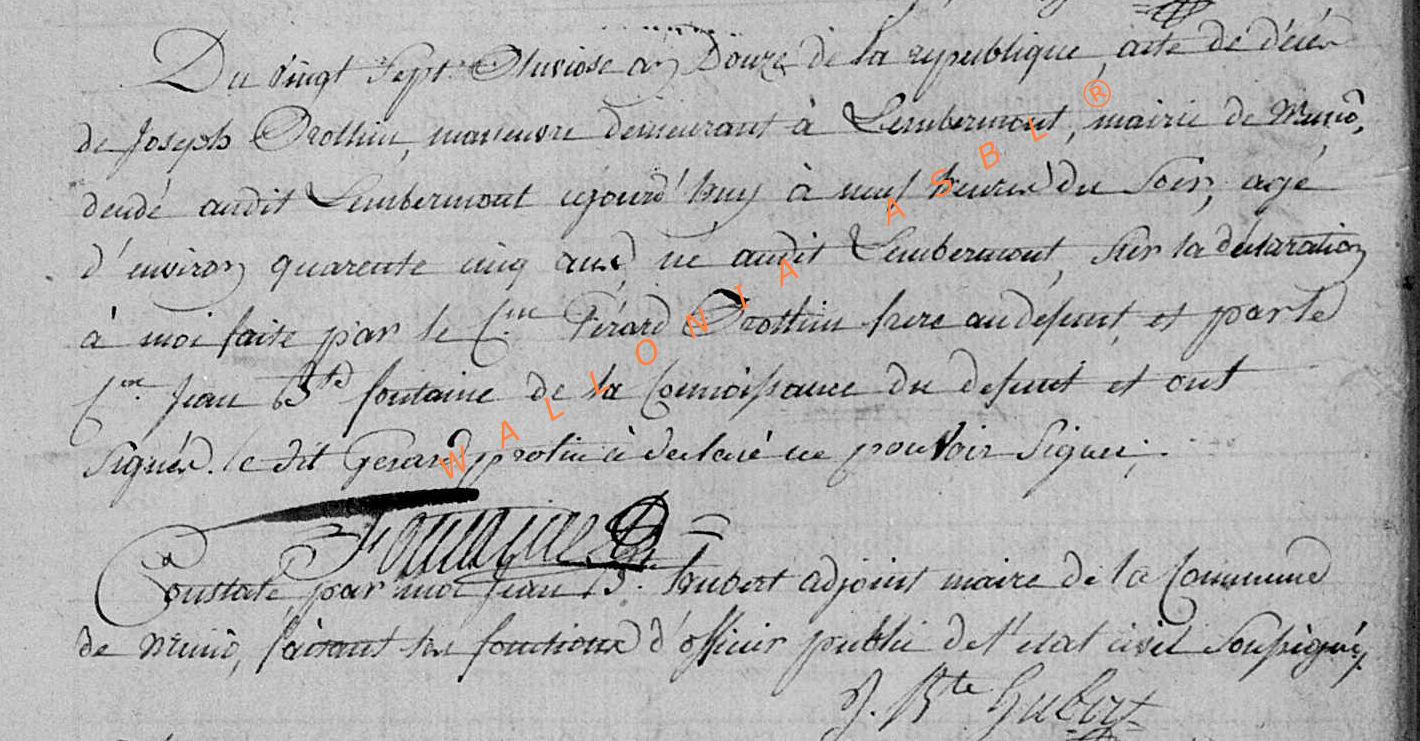 Du vingt sept Pluviose an Douze de la republique, acte de décés
de Joseph Prothin, maneuvre demeurant à Lembermont, mairie de Muno,
dcudé audit Lembermont cejourd'huy à neuf heures du soir, agé
d'environ quarente cinq ans né audit Lembermont, sur la déclaration
à moi faite par le C.en Gérard Prothin frere au défunt, et par le
C.en Jean B.te fontaine de la Connoissance du defunt et ont
signés. le dit Gerard protin à declaré ne pouvoir signer;.
Fontaine
Constaté, par moi Jean B. hubert adjoint maire de la Commune
de Muno, faisant les fonctions d'officier public de l'etat civil soussigné,
J. Bte Hubert
WALLONIA ASBL ®